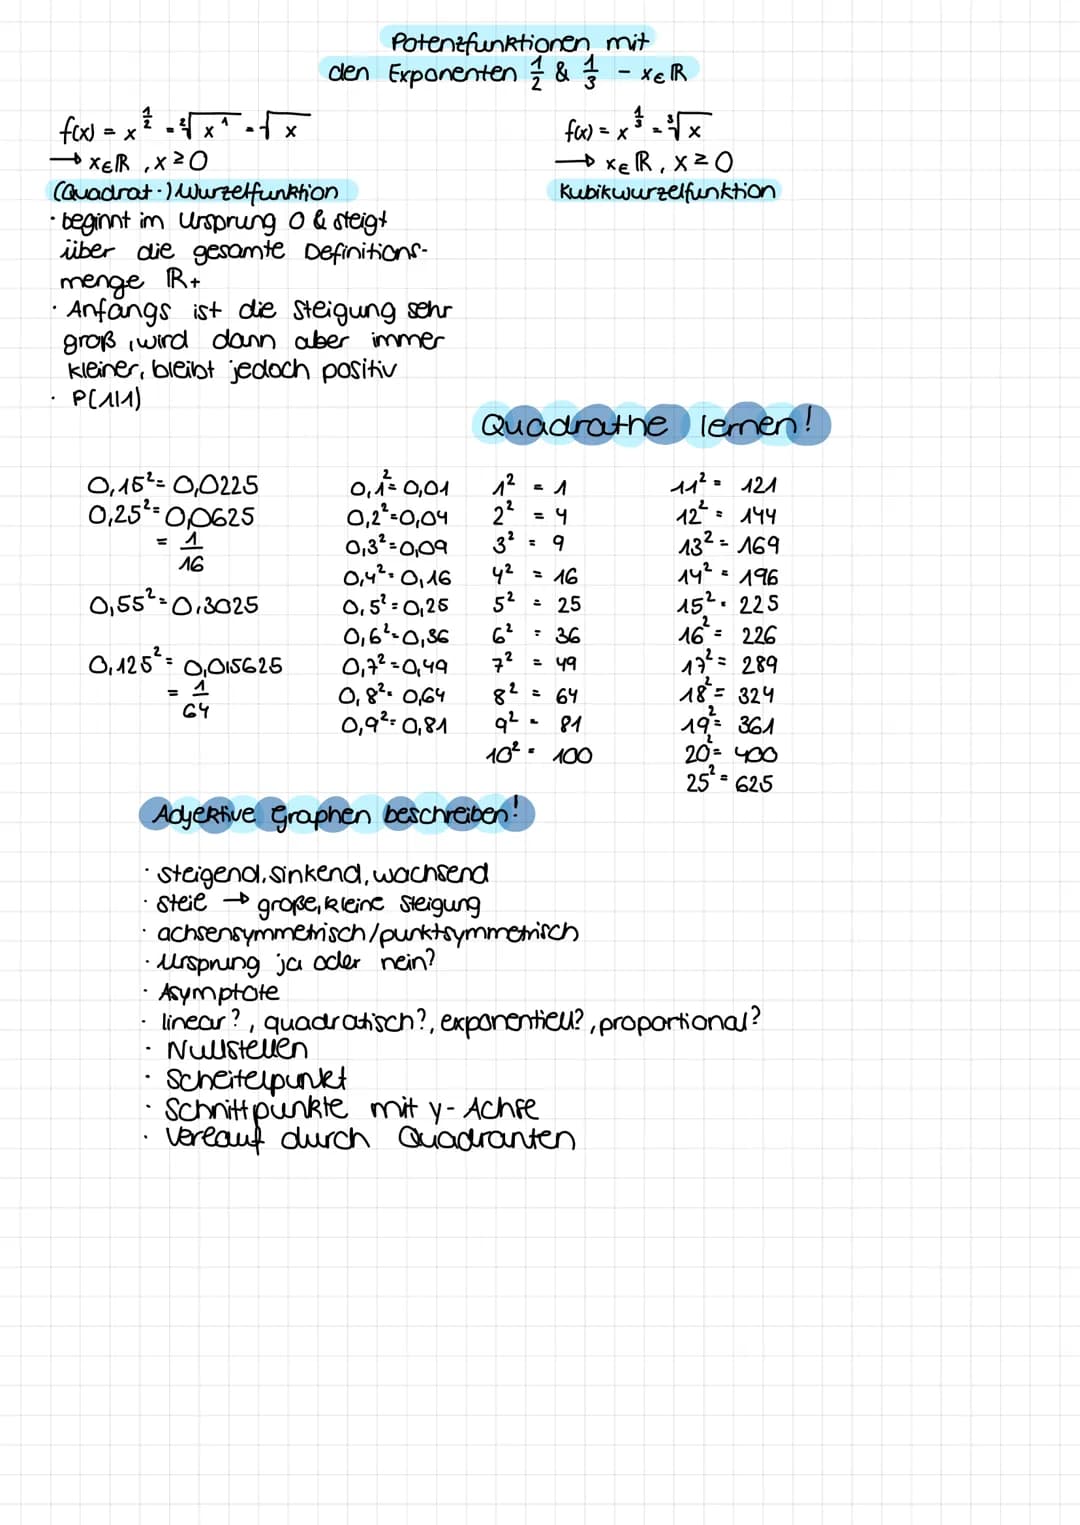 Potenzfunktionen mit
den Exponenten 1/2 & 1/3 - x∈ℝ
f(x) = x^(1/2) = ²√x¹ = √x
→ x∈ℝ, x≥0
(Quadrat-)Wurzelfunktion
· beginnt im Ursprung 0 & steigt
über die gesamte Definitions-
menge ℝ+
· Anfangs ist die Steigung sehr
groß, wird dann aber immer
kleiner, bleibt jedoch positiv
· P(1|1)
f(x) = x^(1/3) = ³√x
→ x∈ℝ, x≥0
Kubikwurzelfunktion
Quadrathe lernen!
0,15² = 0,0225
0,25² = 0,0625
= 1/16
0,55² = 0,3025
0,125² = 0,015625
= 1/64
0,1² = 0,01
0,2² = 0,04
0,3² = 0,09
0,4² = 0,16
0,5² = 0,25
0,6² = 0,36
0,7² = 0,49
0,8² = 0,64
0,9² = 0,81
1² = 1
2² = 4
3² = 9
4² = 16
5² = 25
6² = 36
7² = 49
8² = 64
9² = 81
10² = 100
11² = 121
12² = 144
13² = 169
14² = 196
15² = 225
16² = 226
17² = 289
18² = 324
19² = 361
20² = 400
25² = 625
Adjektive Graphen beschreiben!
· steigend, sinkend, wachsend
· steil → große, kleine Steigung
· achsensymmetrisch/punktsymmetrisch
· Ursprung ja oder nein?
· Asymptote
· linear?, quadratisch?, exponentiell?, proportional?
· Nullstellen
· Scheitelpunkt
· Schnittpunkte mit y-Achse
· Verlauf durch Quadranten